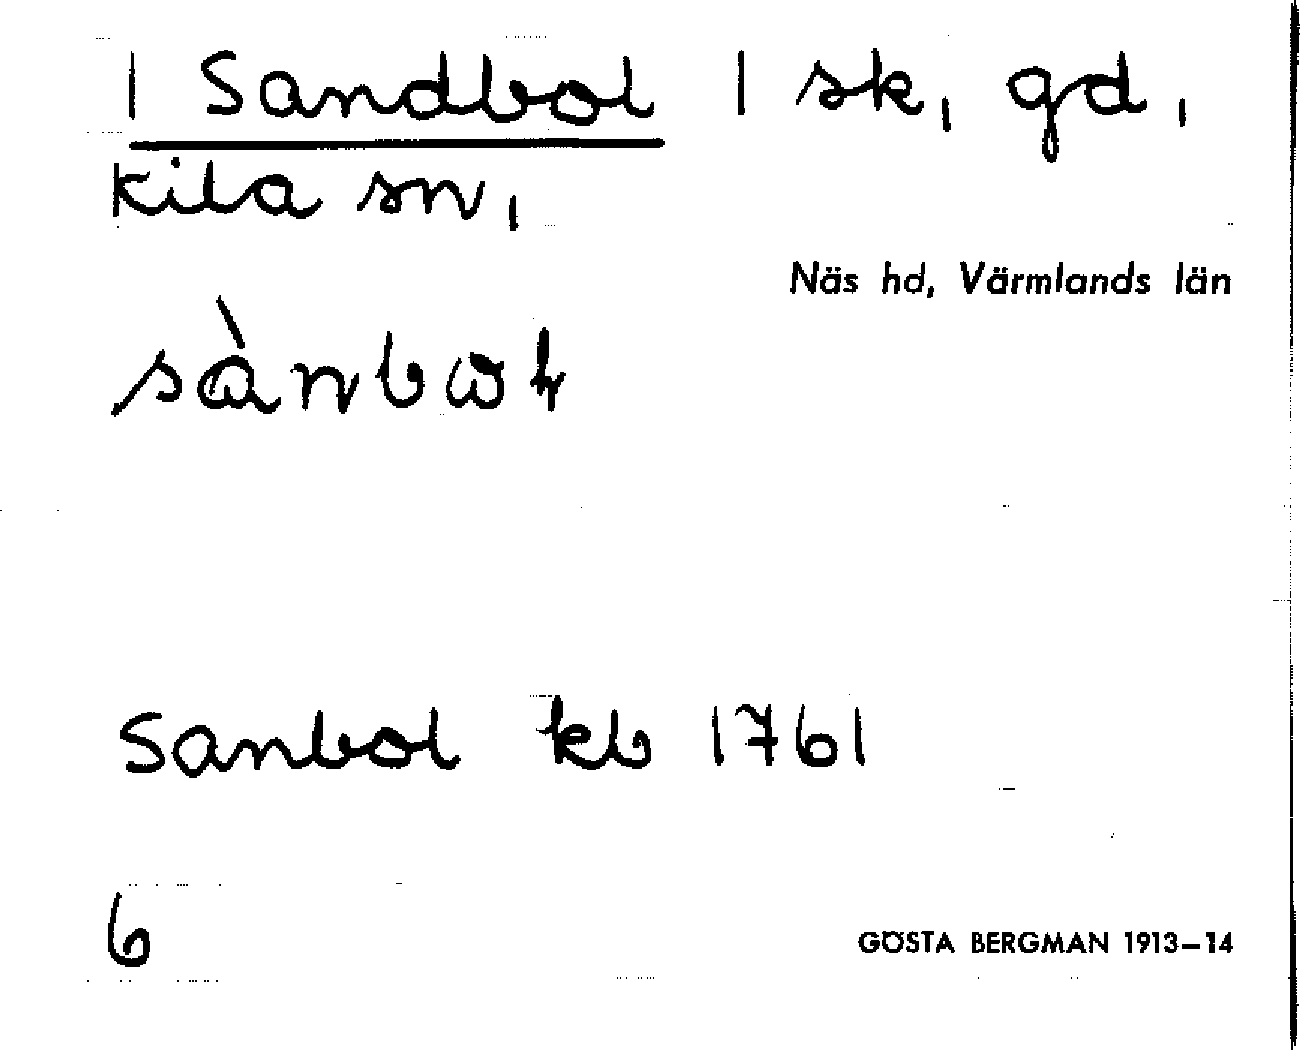 1 Sandbol 1 sk, gd,
Kila sn,
Näs hd, Värmlands län
Sanbol kb 1761
6
GÖSTA BERGMAN 1913–14